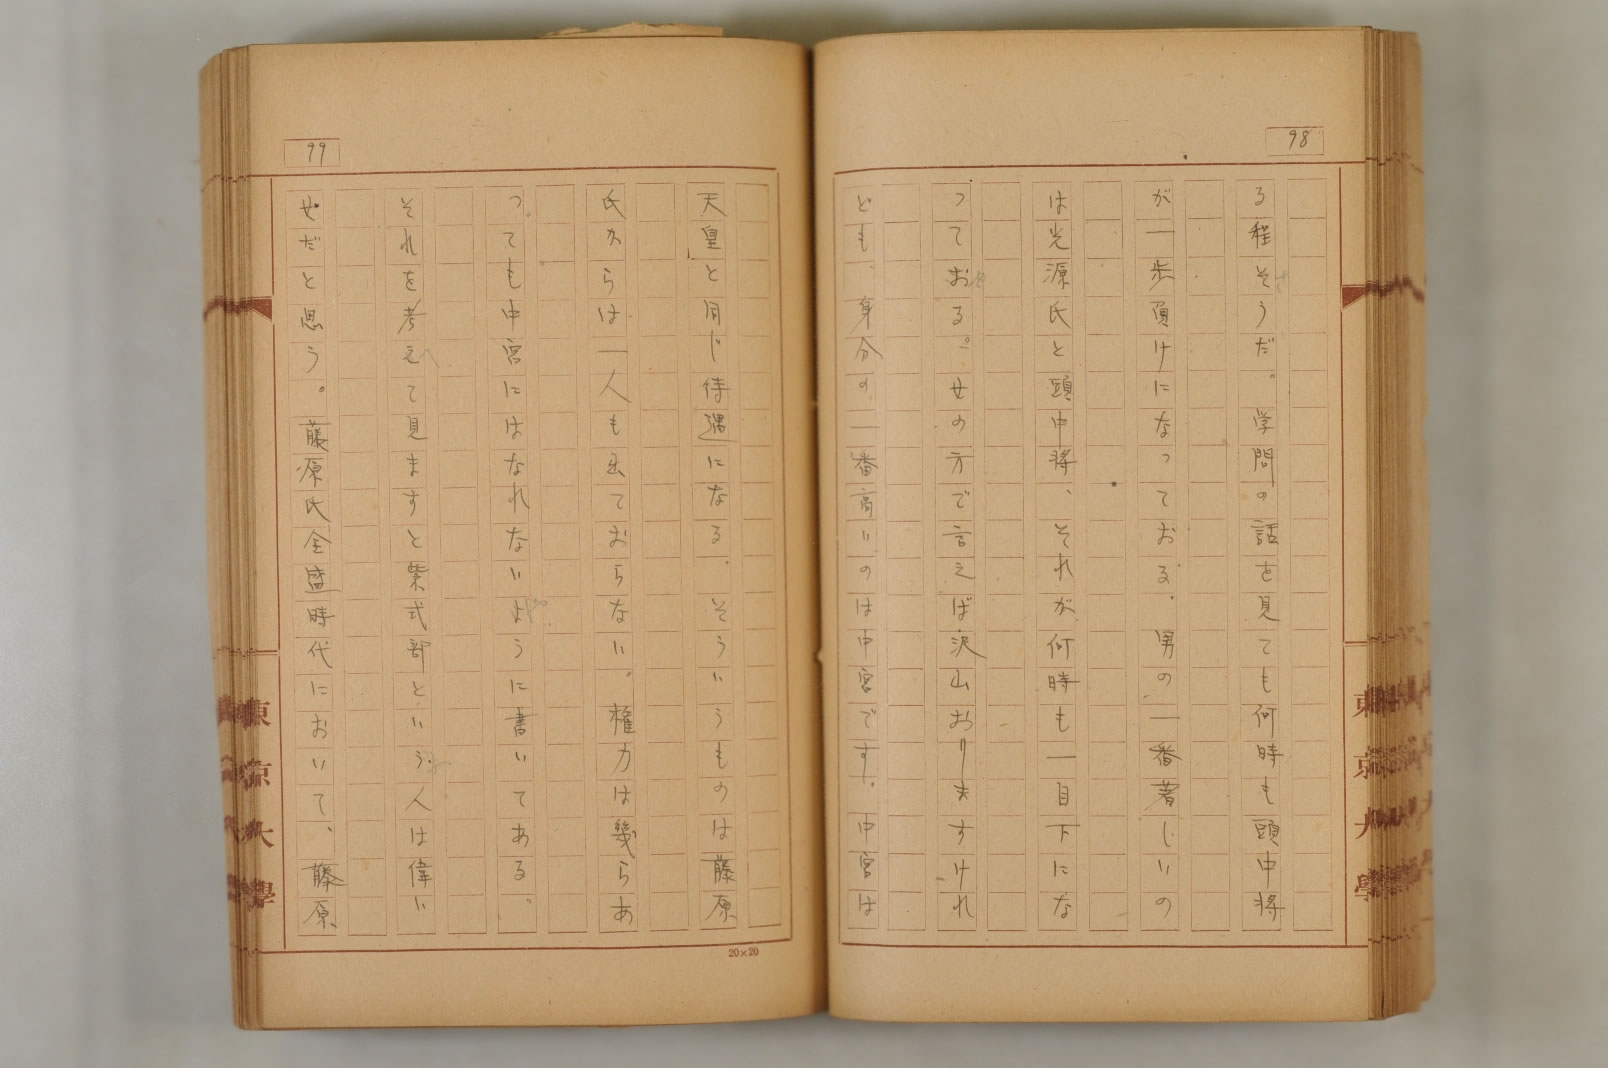 98
る程そうだ。学問の話を見ても何時も頭中将
が一歩負けになっておる。男の一番著しいの
は光源氏と頭中将、それが何時も一目下にな
っておる。女の方で言えば沢山おりますけれ
ども、身分の一番高いのは中宮です。中宮は
東京大學
99
天皇と同じ待遇になる。そういうものは藤原
氏からは一人も出ておらない。権力は幾らあ
っても中宮にはなれないように書いてある。
それを考えて見ますと紫式部という人は偉い
女だと思う。藤原氏全盛時代において、藤原
20×20
東京大學